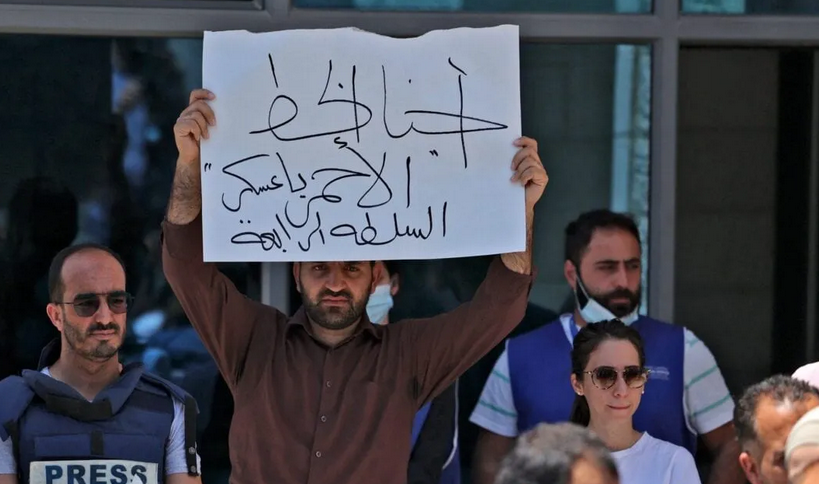 أحنا الخط
"الأحمر يا عسكر"
السلطه الرابعة
PRESS